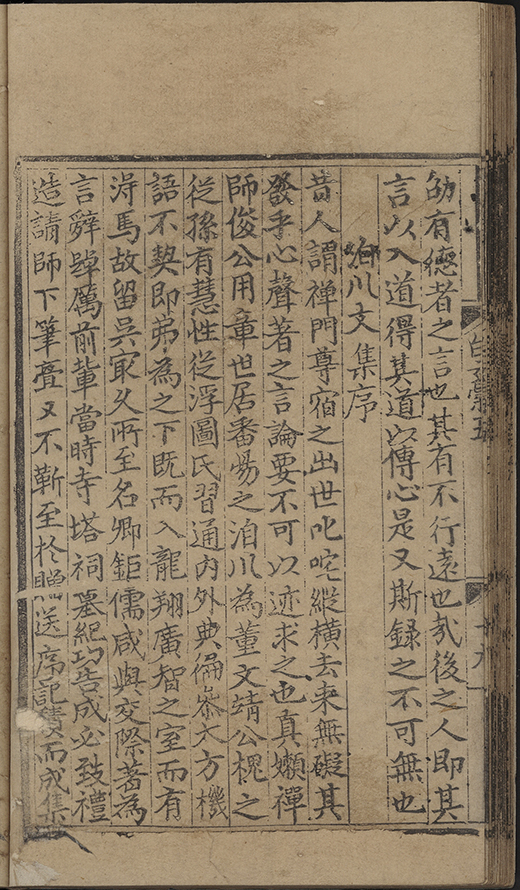 劬有德者之言也其有不行遠也哉後之人即其
言以入道得其道以傳心是又斯録之不可無也
泊川文集序
昔人謂禅門尊宿之出世叱咤縱橫去来無礙其
發乎心聲著之言論要不可以迹求之也真懶禪
師俊公用章世居番昜之泊川為董文靖公槐之
從孫有慧性從浮圖氏習通内外典徧叅大方機
語不契即弟為之下既而入龍翔廣智之室而有
淂焉故留吳㝡久所至名卿鉅儒咸與交際著為
言辭踔厲前輩當時寺塔祠墓紀功告成必致禮
造請師下筆亹又不靳至扵贈送序記賡而成集
白藁五
十九